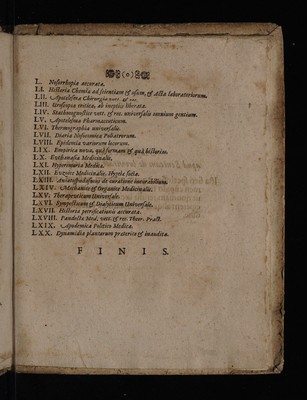 (o)
L. Nosorrhopia accurata.
LI. Historia Chemia ad scientiam & usum, & Acta laboratoriorum.
LII. Apotelisma Chirurgiæ vett. & rec.
LIII. Uroscopia critica, ab ineptiis liberata.
LIV. Stathmegnostice vett. & rec. universalis omnium gentium.
LV. Apotelisma Pharmaceuticum.
LVI. Thermographia universalis.
LVII. Diaria Nosocomica Poliatrorum.
LVIII. Epidemia variorum locorum.
LIX. Empirica nova, quâ formam & quâ historias.
LX. Euthanasia Medicinalis.
LXI. Hyperimaria Medica.
LXII. Euexia Medicinalis, Hygeia socia.
LXIII. de curatione
LXIV. Mechanice & Organice Medicinalis.
LXV. Therapeuticum Universale.
LXVI. Sympoticum & Diæteticum Universale.
LXVII. Historia petrificationis accurata.
LXVIII. Pandecta Med. vett. & rec. Theor. Pract.
LXIX. Apodemica Politico Medica.
LXX. Dynamidia plantarum præterito & inaudita.
FINIS.